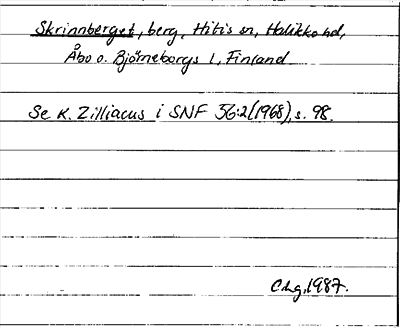 Skrinnberget, berg, Hitis sn, Halikko hd,
Åbo o. Björneborgs l, Finland
Se K. Zilliacus i SNF 56:2(1968), s. 98.
CLg, 1987.